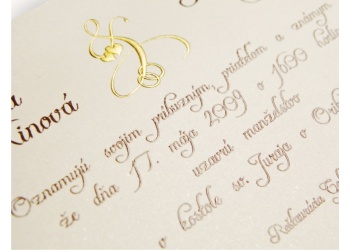 Kinová
Oznamujú svojim príbuzným, priateľom a známym
že dňa 17. mája 2009 o 16.00 hodine
uzavrú manželstvo
v kostole sv. Juraja v
Reštaurácia